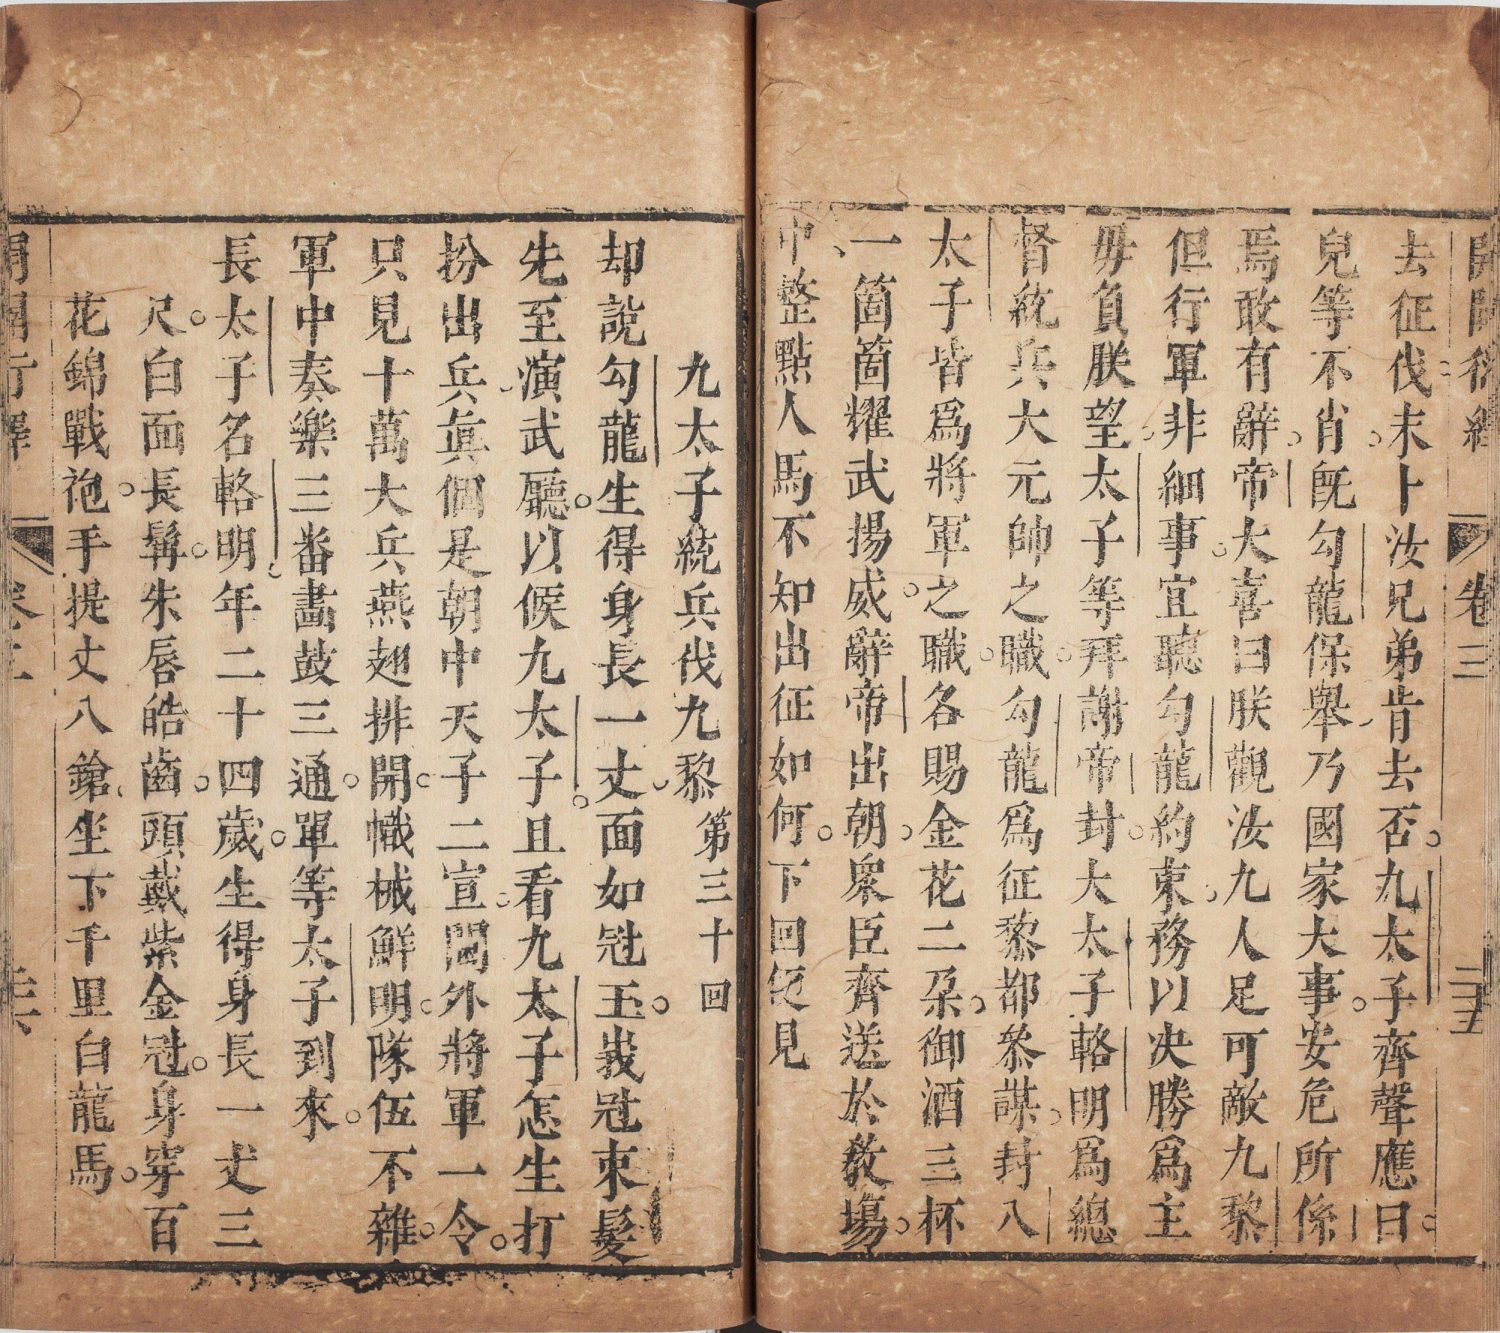 開闢衍繹 卷三 二十五
去征伐未卜汝兄弟肯去否九太子齊聲應曰
兒等不肖旣勾龍保舉乃國家大事安危所係
焉敢有辭帝大喜曰朕觀汝九人足可敵九黎
但行軍非細事宜聽勾龍約束務以决勝爲主
毋負朕望太子等拜謝帝封大太子輅明爲總
督統兵大元帥之職勾龍爲征黎都叅謀封八
太子皆爲將軍之職各賜金花二朶御酒三杯
一箇箇耀武揚威辭帝出朝衆臣齊送於敎塲
中整點人馬不知出征如何下回便見
九太子統兵伐九黎 第三十回
却說勾龍生得身長一丈面如冠玉峩冠束髮
先至演武廳以候九太子且看九太子怎生打
扮出兵眞個是朝中天子二宣閫外將軍一令
只見十萬大兵燕翅排開幟械鮮明隊伍不雜
軍中奏樂三番畵鼓三通單等太子到來
長太子名輅明年二十四歲生得身長一丈三
尺白面長髯朱唇皓齒頭戴紫金冠身穿百
花錦戰袍手提丈八鎗坐下千里白龍馬
開闢衍繹 卷三 二十六